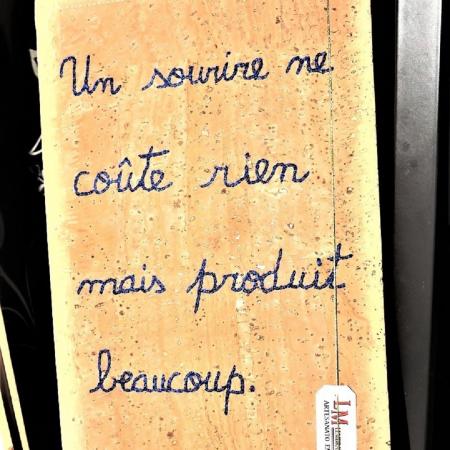 Un sourire ne
coûte rien
mais produit
beaucoup.
LM
ARTESANATO